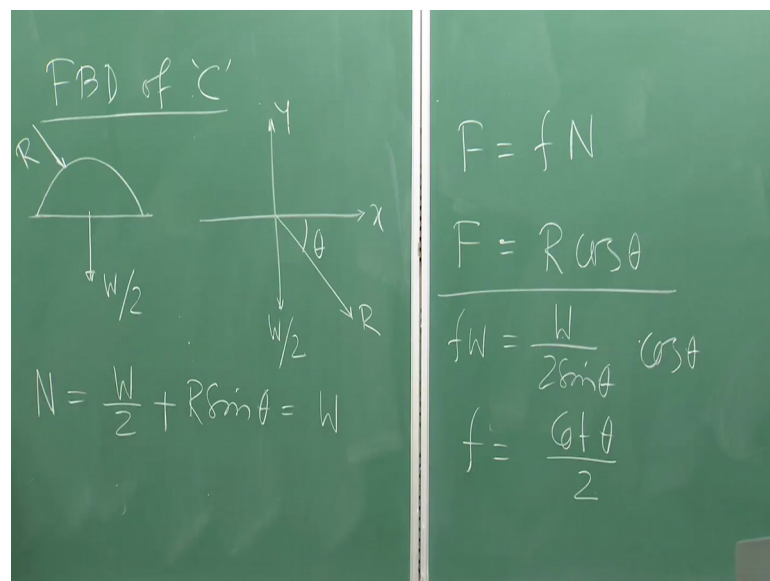 FBD of 'C'
R
W/2
Y
x
θ
R
W/2
N = W/2 + R sin θ = W
F = f N
F = R cos θ
fW = W/2sinθ cosθ
f = Cot θ/2